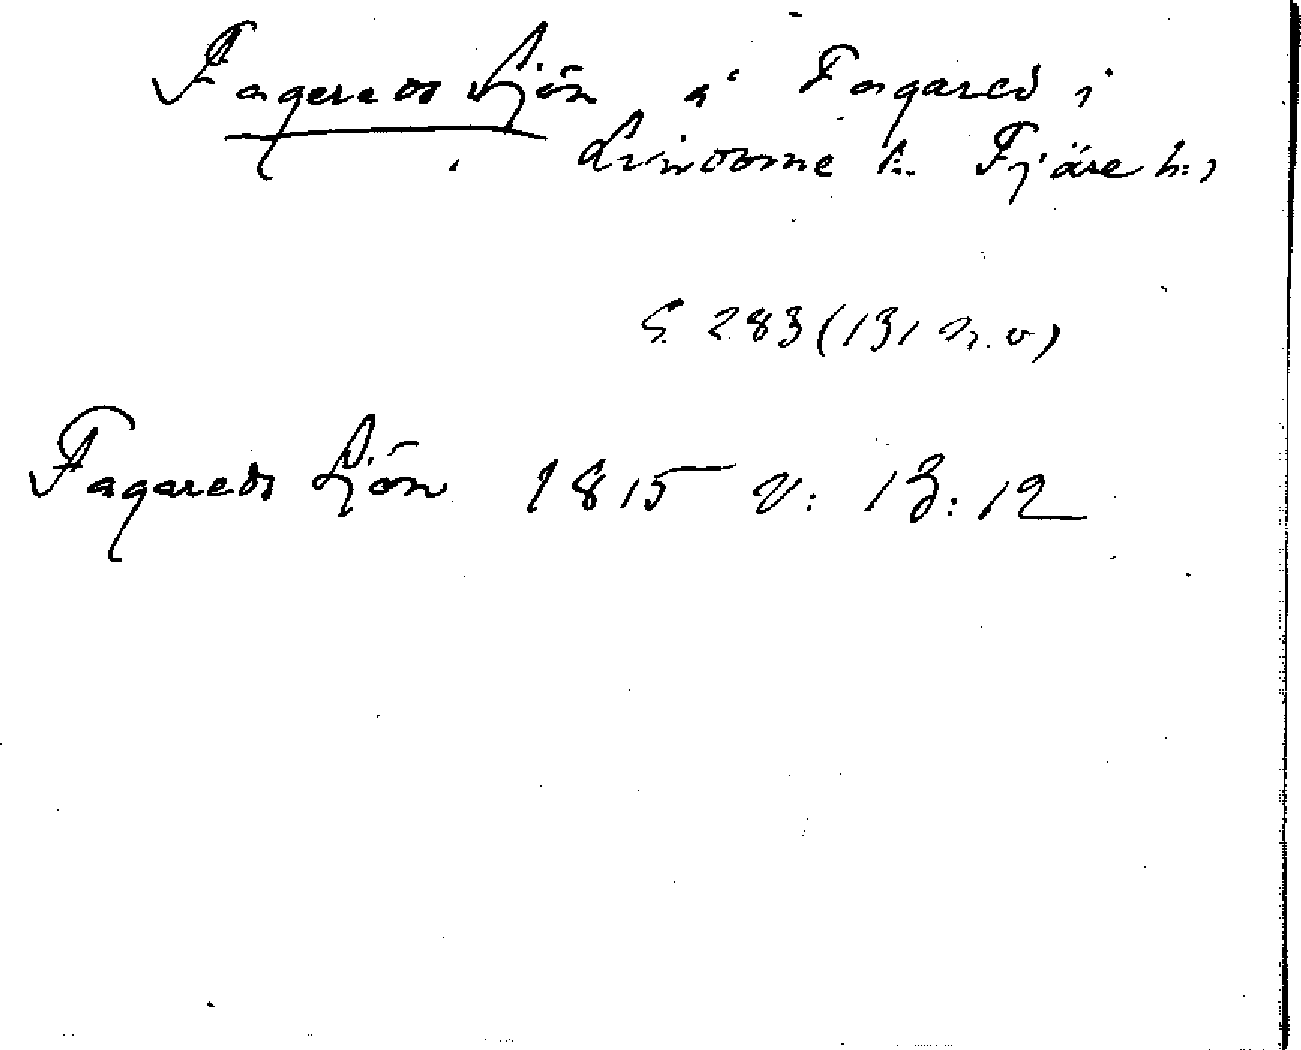 Fagereds sjön å Fagared i
Lindome s. Fjäre h.,
S. 283 (131 n.v)
Fagareds sjön 1815 v: 13:12